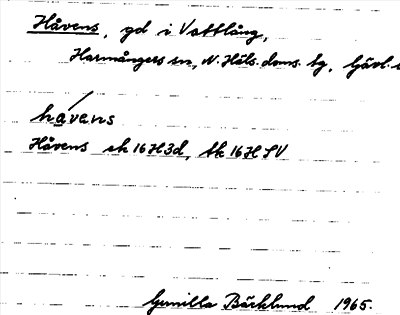 Håvens, gd i Vattlång,
Harmångers sn, N. Häls. doms. tg, Gävl.
håvens
Håvens ek 16H3d, tk 16H SV
Gunilla Bäcklund 1965.